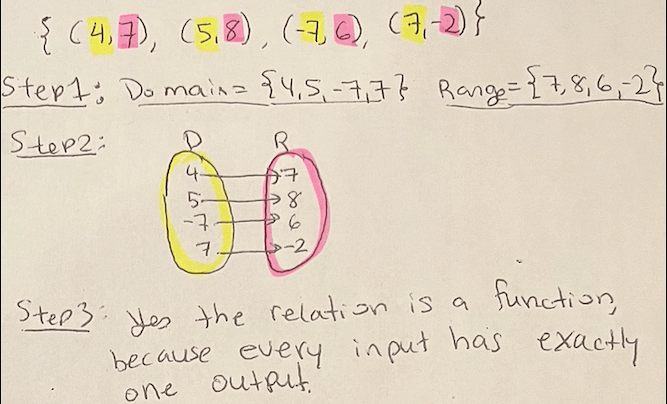 { (4,7), (5,8), (-7,6), (7,-2)}
Step1: Domain= {4,5,-7,7} Range={7,8,6,-2}
Step2:
D R
4 7
5 8
-7 6
7 -2
Step3: Yes the relation is a function,
because every input has exactly
one output.